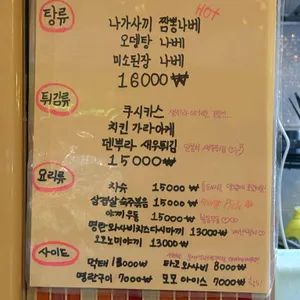 탕류
HOT
나가사끼 짬뽕나베
오뎅탕 나베
미소된장 나베
16000₩
튀김류
쿠시카스
치킨 가라아게
덴뿌라 새우튀김
15000₩
요리류
차슈 15000₩
삼겹살 숙주볶음 15000₩
야끼우동 15000₩
명란와사비치즈타시마끼 13000₩
오꼬노미야끼 13000₩
사이드
먹태 18000₩ 타코와사비 8000₩
명란구이 7000₩ 모찌아이스 7000₩